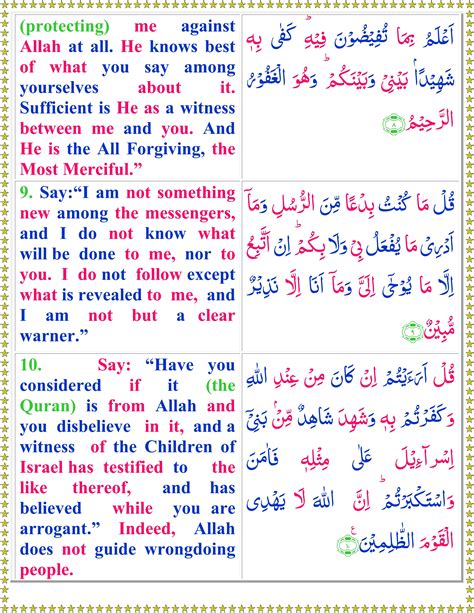 (protecting) me against
Allah at all. He knows best
of what you say among
yourselves about it.
Sufficient is He as a witness
between me and you. And
He is the All Forgiving, the
Most Merciful.”
اَعْلَمُ بِمَا تُفِيْضُوْنَ فِيْهِ ؕ كَفٰى بِهٖ
شَهِيْدًۢا بَيْنِيْ وَبَيْنَكُمْ ؕ وَهُوَ الْغَفُوْرُ
الرَّحِيْمُ ﴿۸﴾
9. Say:“I am not something
new among the messengers,
and I do not know what
will be done to me, nor to
you. I do not follow except
what is revealed to me, and
I am not but a clear
warner.”
قُلْ مَا كُنْتُ بِدْعًا مِّنَ الرُّسُلِ وَمَاۤ
اَدْرِيْ مَا يُفْعَلُ بِيْ وَلَا بِكُمْ ؕ اِنْ اَتَّبِعُ
اِلَّا مَا يُوْحٰۤى اِلَيَّ وَمَاۤ اَنَا اِلَّا نَذِيْرٌ
مُّبِيْنٌ ﴿۹﴾
10. Say: “Have you
considered if it (the
Quran) is from Allah and
you disbelieve in it, and a
witness of the Children of
Israel has testified to the
like thereof, and has
believed while you are
arrogant.” Indeed, Allah
does not guide wrongdoing
people.
قُلْ اَرَءَيْتُمْ اِنْ كَانَ مِنْ عِنْدِ اللّٰهِ
وَكَفَرْتُمْ بِهٖ وَشَهِدَ شَاهِدٌ مِّنْۢ بَنِيْۤ
اِسْرَآءِيْلَ عَلٰى مِثْلِهٖ فَاٰمَنَ
وَاسْتَكْبَرْتُمْ ؕ اِنَّ اللّٰهَ لَا يَهْدِى
الْقَوْمَ الظّٰلِمِيْنَ ﴿۱۰﴾